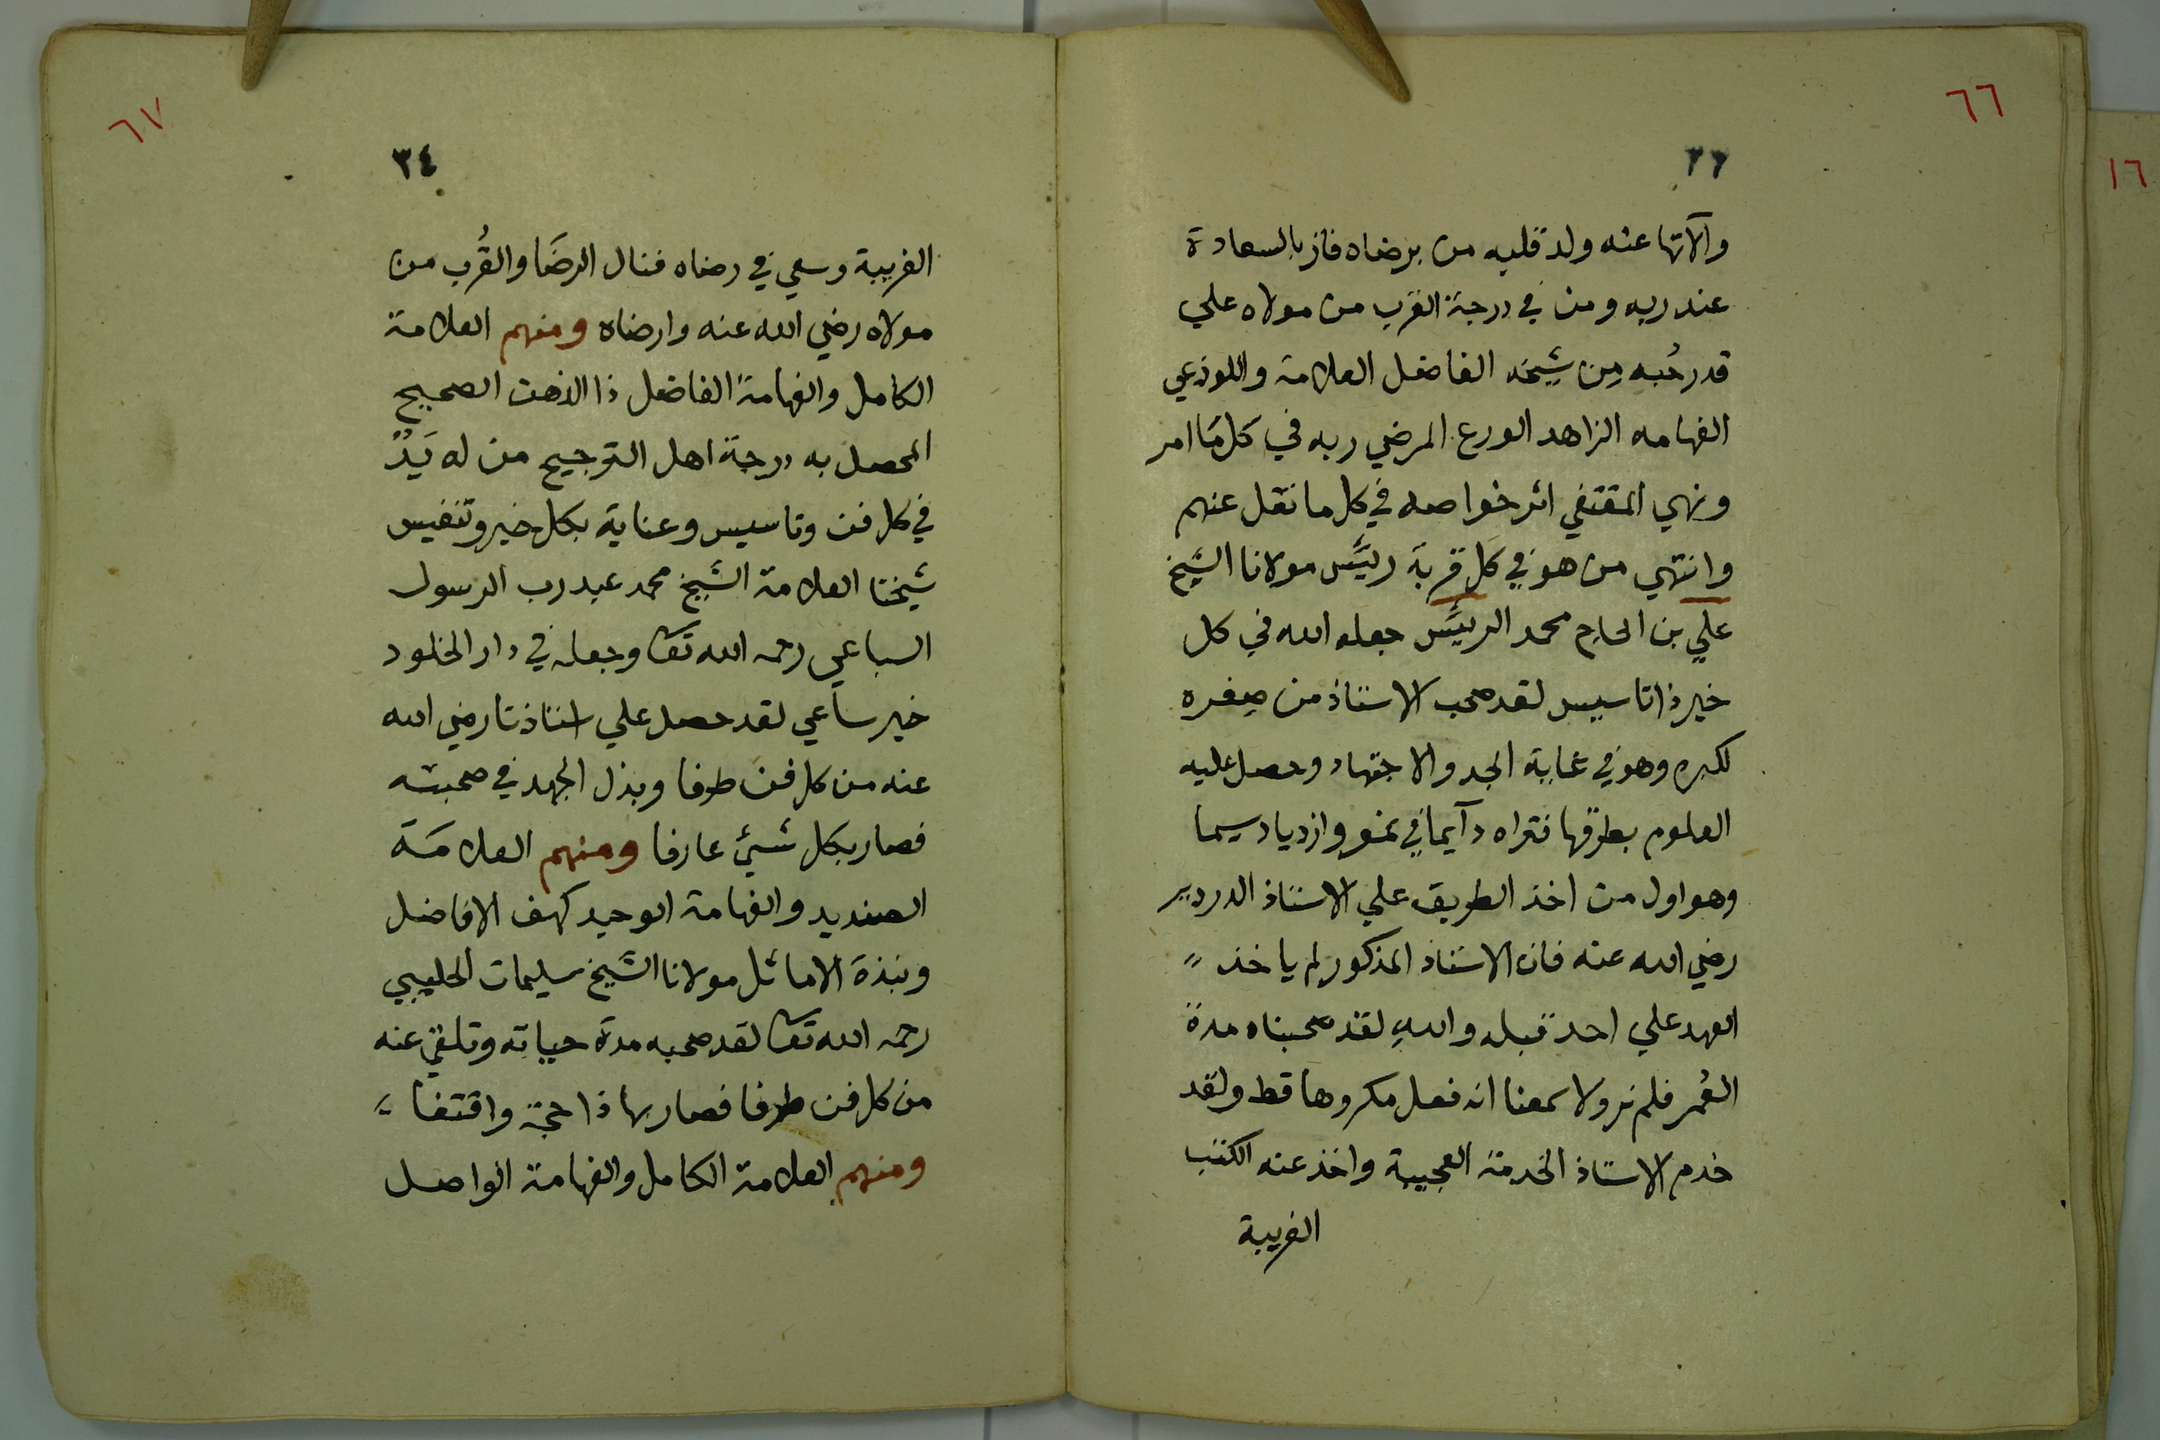 ٦٦
١٦
٣٣
والآتها عنه ولد قلبه من برضاه فاز بالسعادة
عند ربه ومن في درجة القرب من مولاه علي
قدر حُبه مِن شيخه الفاضل العلامة واللوذعي
الفهامه الزاهد الورع المرضي ربه في كل مَا امر
ونهي المقتفي اثر خواصه في كل ما نقل عنهم
وانتهي من هو في كل قربة ريَّس مولانا الشيخ
علي بن الحاج محمد الريَّس جعله الله في كل
خير ذا تاسيس لقد صحب الاستاذ من صِغره
لكبره وهو في غاية الجد والاجتهاد وحصل عليه
العلوم بطرقها فتراه دآيما في نمو وازدياد سيما
وهو اول من اخذ الطريق علي الاستاذ الدردير
رضي الله عنه فان الاستاذ المذكور لم ياخذ
العهد علي احد قبله واللهِ لقد صحبناه مدة
العُمر فلم نر ولا سمعنا انه فعل مكروها قط ولقد
خدم الاستاذ الخدمة العجيبة واخذ عنه الكتب
الغريبة
٦٧
٣٤
الغريبة وسعي في رضاه فنال الرضَا والقُرب من
مولاه رضي الله عنه وارضاه ومنهم العلامة
الكامل والفهامة الفاضل ذا الذهن الصحيح
المحصل به درجة اهل الترجيح من له يَدٌ
في كل فن وتاسيس وعناية بكل خير وتنفيس
شيخنا العلامة الشيخ محمد عبد رب الرسول
السباعي رحمه الله تعا وجعله في دار الخلود
خير ساعي لقد حصل علي استاذنا رضي الله
عنه من كل فن طرفا وبذل الجهد في صحبته
فصار بكل شيءٍ عارفا ومنهم العلامَة
الصنديد والفهامة الوحيد كهف الافاضل
ونبذة الاماثل مولانا الشيخ سليمان الحليبي
رحمه الله تعا لقد صحبه مدة حياته وتلقي عنه
من كل فن طرفا فصار بها ذا حجة واقتفا
ومنهم العلامة الكامل والفهامة الواصل